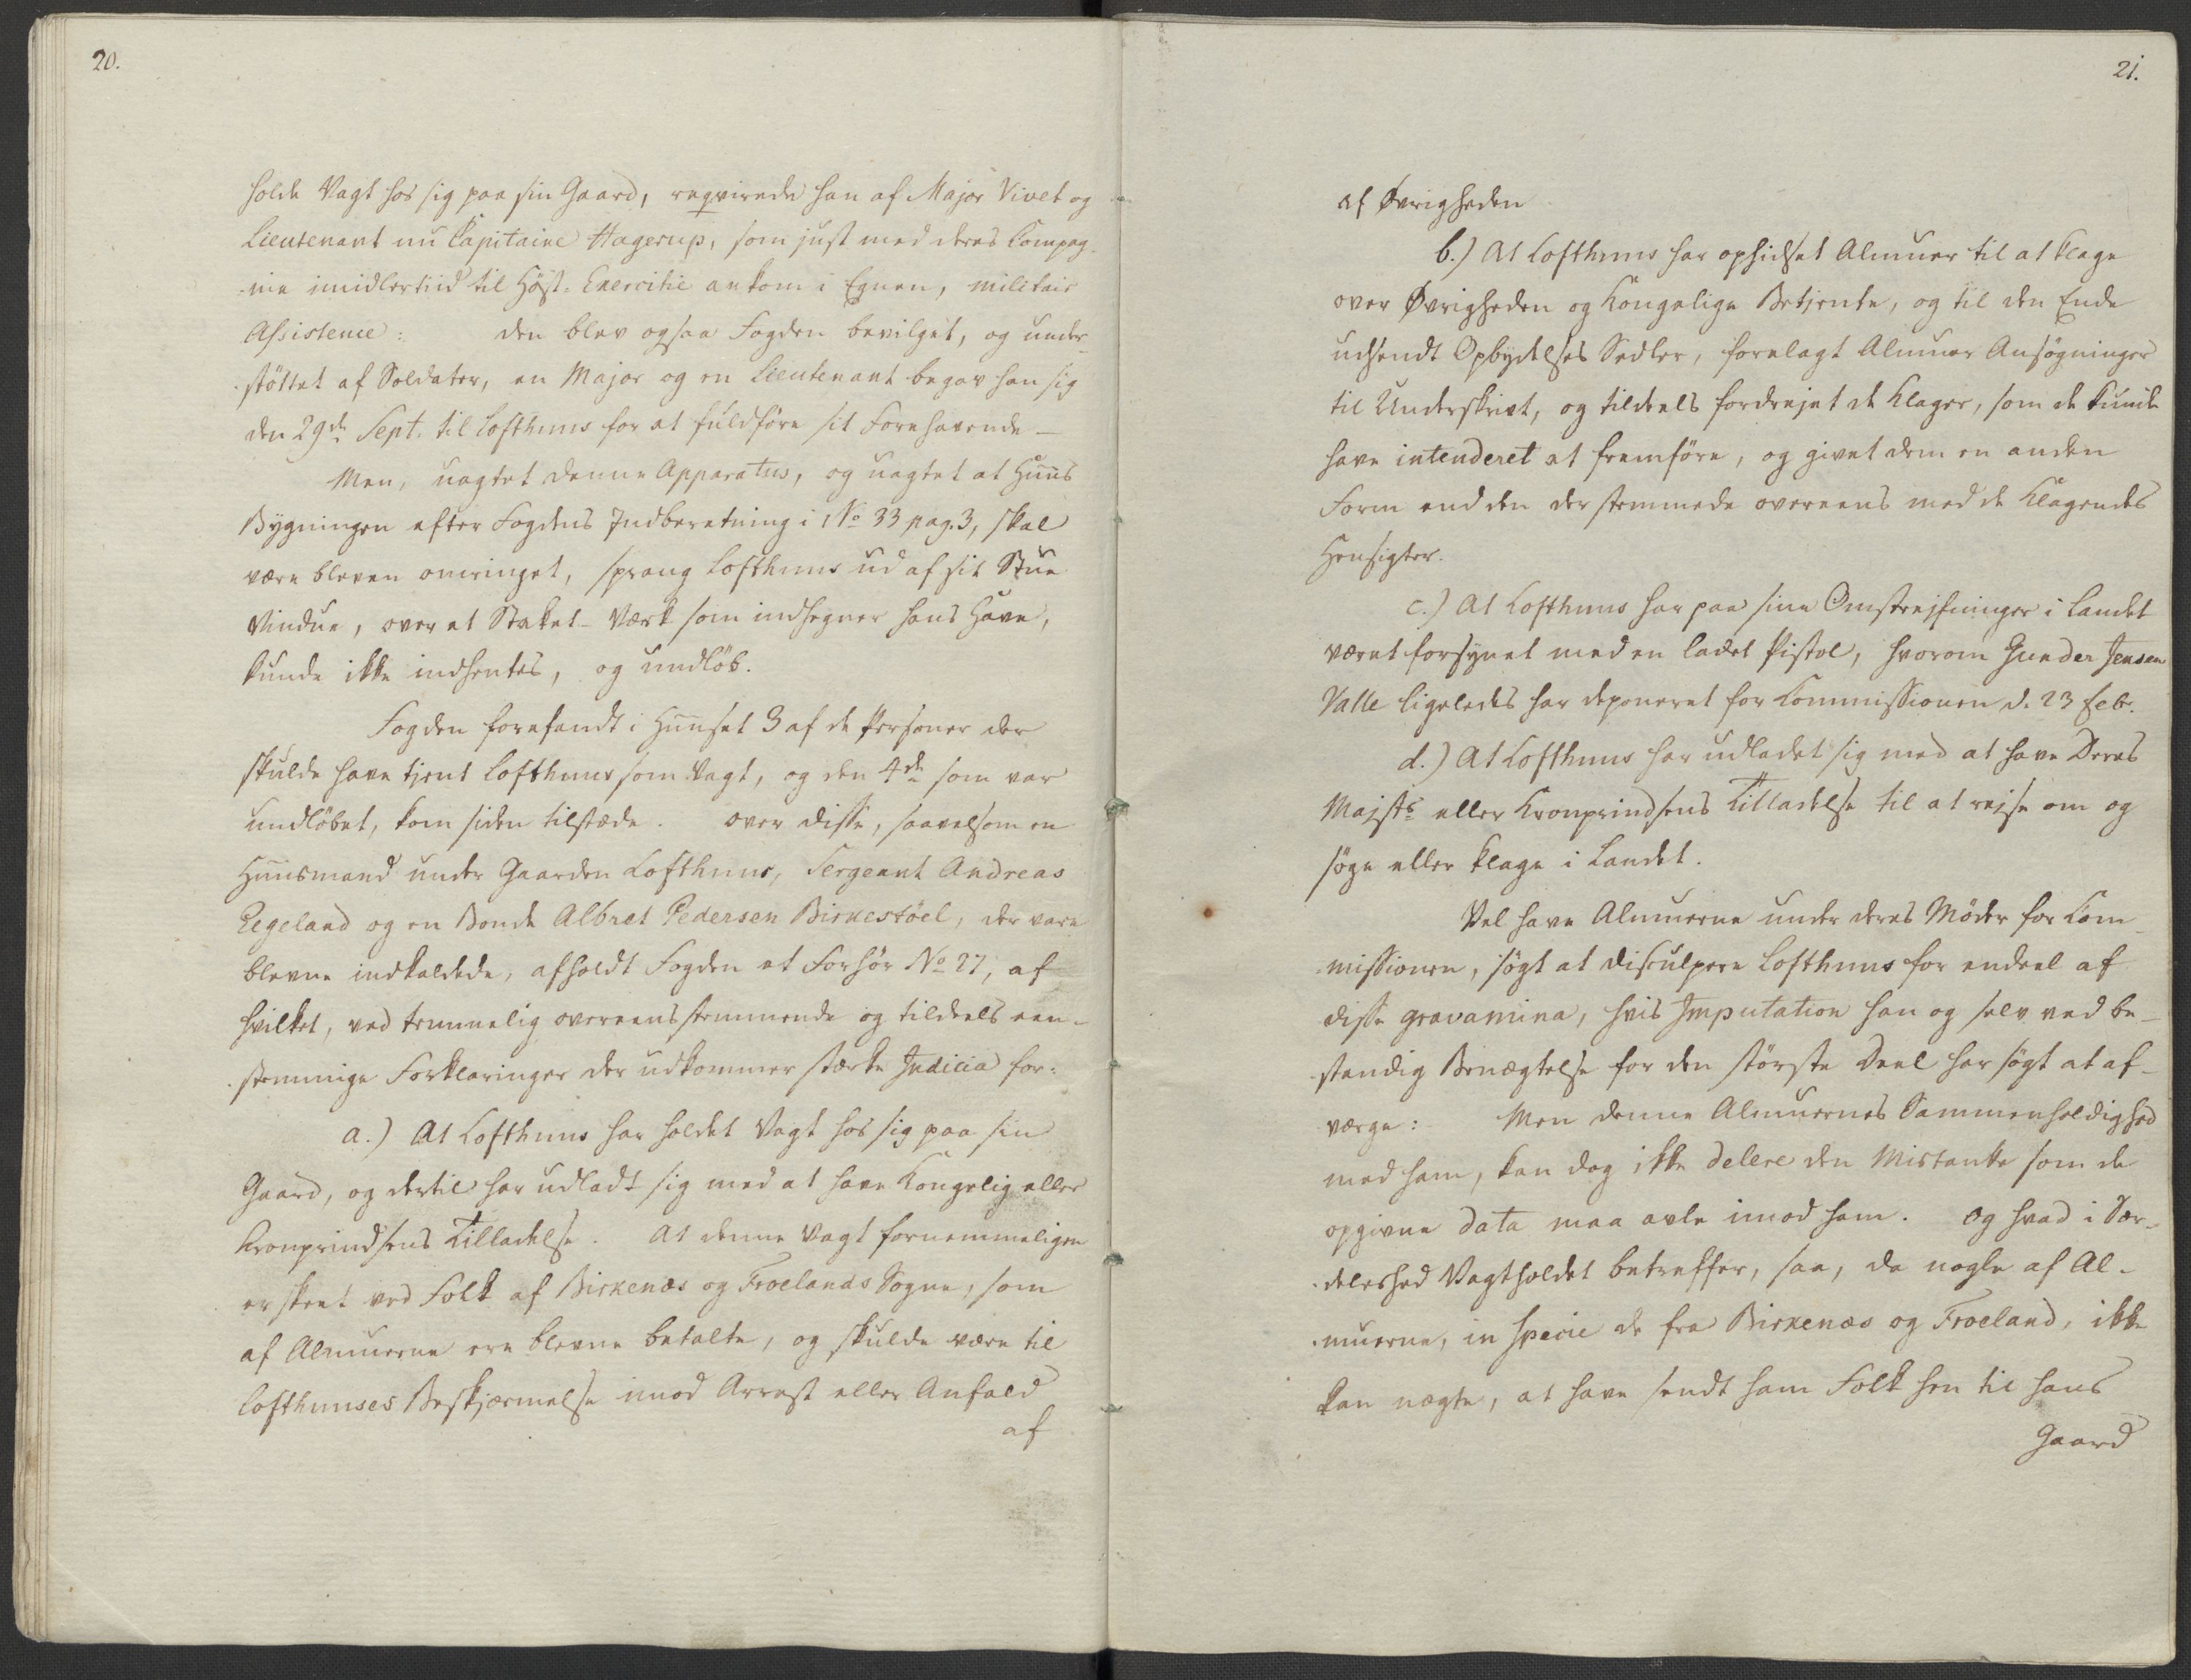 20.
holde Vagt hos sig paa sin Gaard, reqvirede han af Major Vivet og
Lieutenant nu Capitaine Hagerup, som just med deres Compag-
nie imidlertiid til Höst-Exercitie ankom i Egnen, militair
Assistence: den blev ogsaa Fogden bevilget, og under-
stöttet af Soldater, en Major og en Lieutenant begav han sig
den 29de Sept. til Lofthuus for at fuldföre sit Forehavende —
Men, uagtet denne Apparatus, og uagtet at Huus
Bygningen efter Fogdens Indberetning i No 33 pag. 3, skal
være bleven omringet, sprang Lofthuus ud af sit Stue
Vindue, over et Staket-Værk som indhegner hans Have,
kunde ikke indhentes, og undlöb.
Fogden forefandt i Huuset 3 af de Personer der
skulde have tjent Lofthuus som Vagt, og den 4de som var
undlöbet, kom siden tilstæde. Over disse, saavelsom en
Huusmand under Gaarden Lofthuus, Sergeant Andreas
Regeland og en Bonde Albret Pedersen Birkestöel, der vare
blevne indkaldede, afholdt Fogden et Forhör No 27, af
hvilket, ved temmelig overeensstemmende og tildeels een-
stemmige Forklaringer der udkommer stærke Indicia for:
a.) At Lofthuus har holdet Vagt hos sig paa sin
Gaard, og dertil har udladt sig med at have Kongelig eller
Kronprindsens Tilladelse. At denne Vagt fornemmeligen
er skeet ved Folk af Birkenæs og Froelands Sogne, som
af Almuerne ere blevne betalte, og skulde være til
Lofthuuses Beskjærmelse imod Arrest eller Anfald
af
21.
af Øvrigheden
b.) At Lofthuus har ophidset Almuer til at klage
over Øvrigheden og Kongelige Betjente, og til den Ende
udsendt Opbydelses Sedler, forelagt Almuer Ansögninger
til Underskrivt, og tildeels fordrejet de Klager, som de kunde
have intenderet at fremföre, og givet dem en anden
Form end den der stemmede overeens med de Klagendes
Hensigter.
c.) At Lofthuus har paa sine Omstrejfninger i Landet
været forsynet med en ladet Pistol, hvorom Gunder Jensen
Valle ligeledes har deponeret for Commissionen d. 23 Febr.
d.) At Lofthuus har udladet sig med at have Deres
Majsts eller Kronprindsens Tilladelse til at rejse om og
söge eller klage i Landet.
Vel have Almuerne under deres Möder for Com-
missionen, sögt at disculpere Lofthuus for endeel af
disse gravamina, hvis Imputation han og selv ved be-
standig Benægtelse for den störste Deel har sögt at af-
værge: Men denne Almuernes Sammenholdighed
med ham, kan dog ikke delere den Mistanke som de
opgivne data maa avle imod ham. Og hvad i Sær-
deleshed Vagtholdet betreffer, saa, da nogle af Al-
muerne, in specie de fra Birkenæs og Froeland, ikke
kan nægte, at have sendt ham Folk hen til hans
Gaard